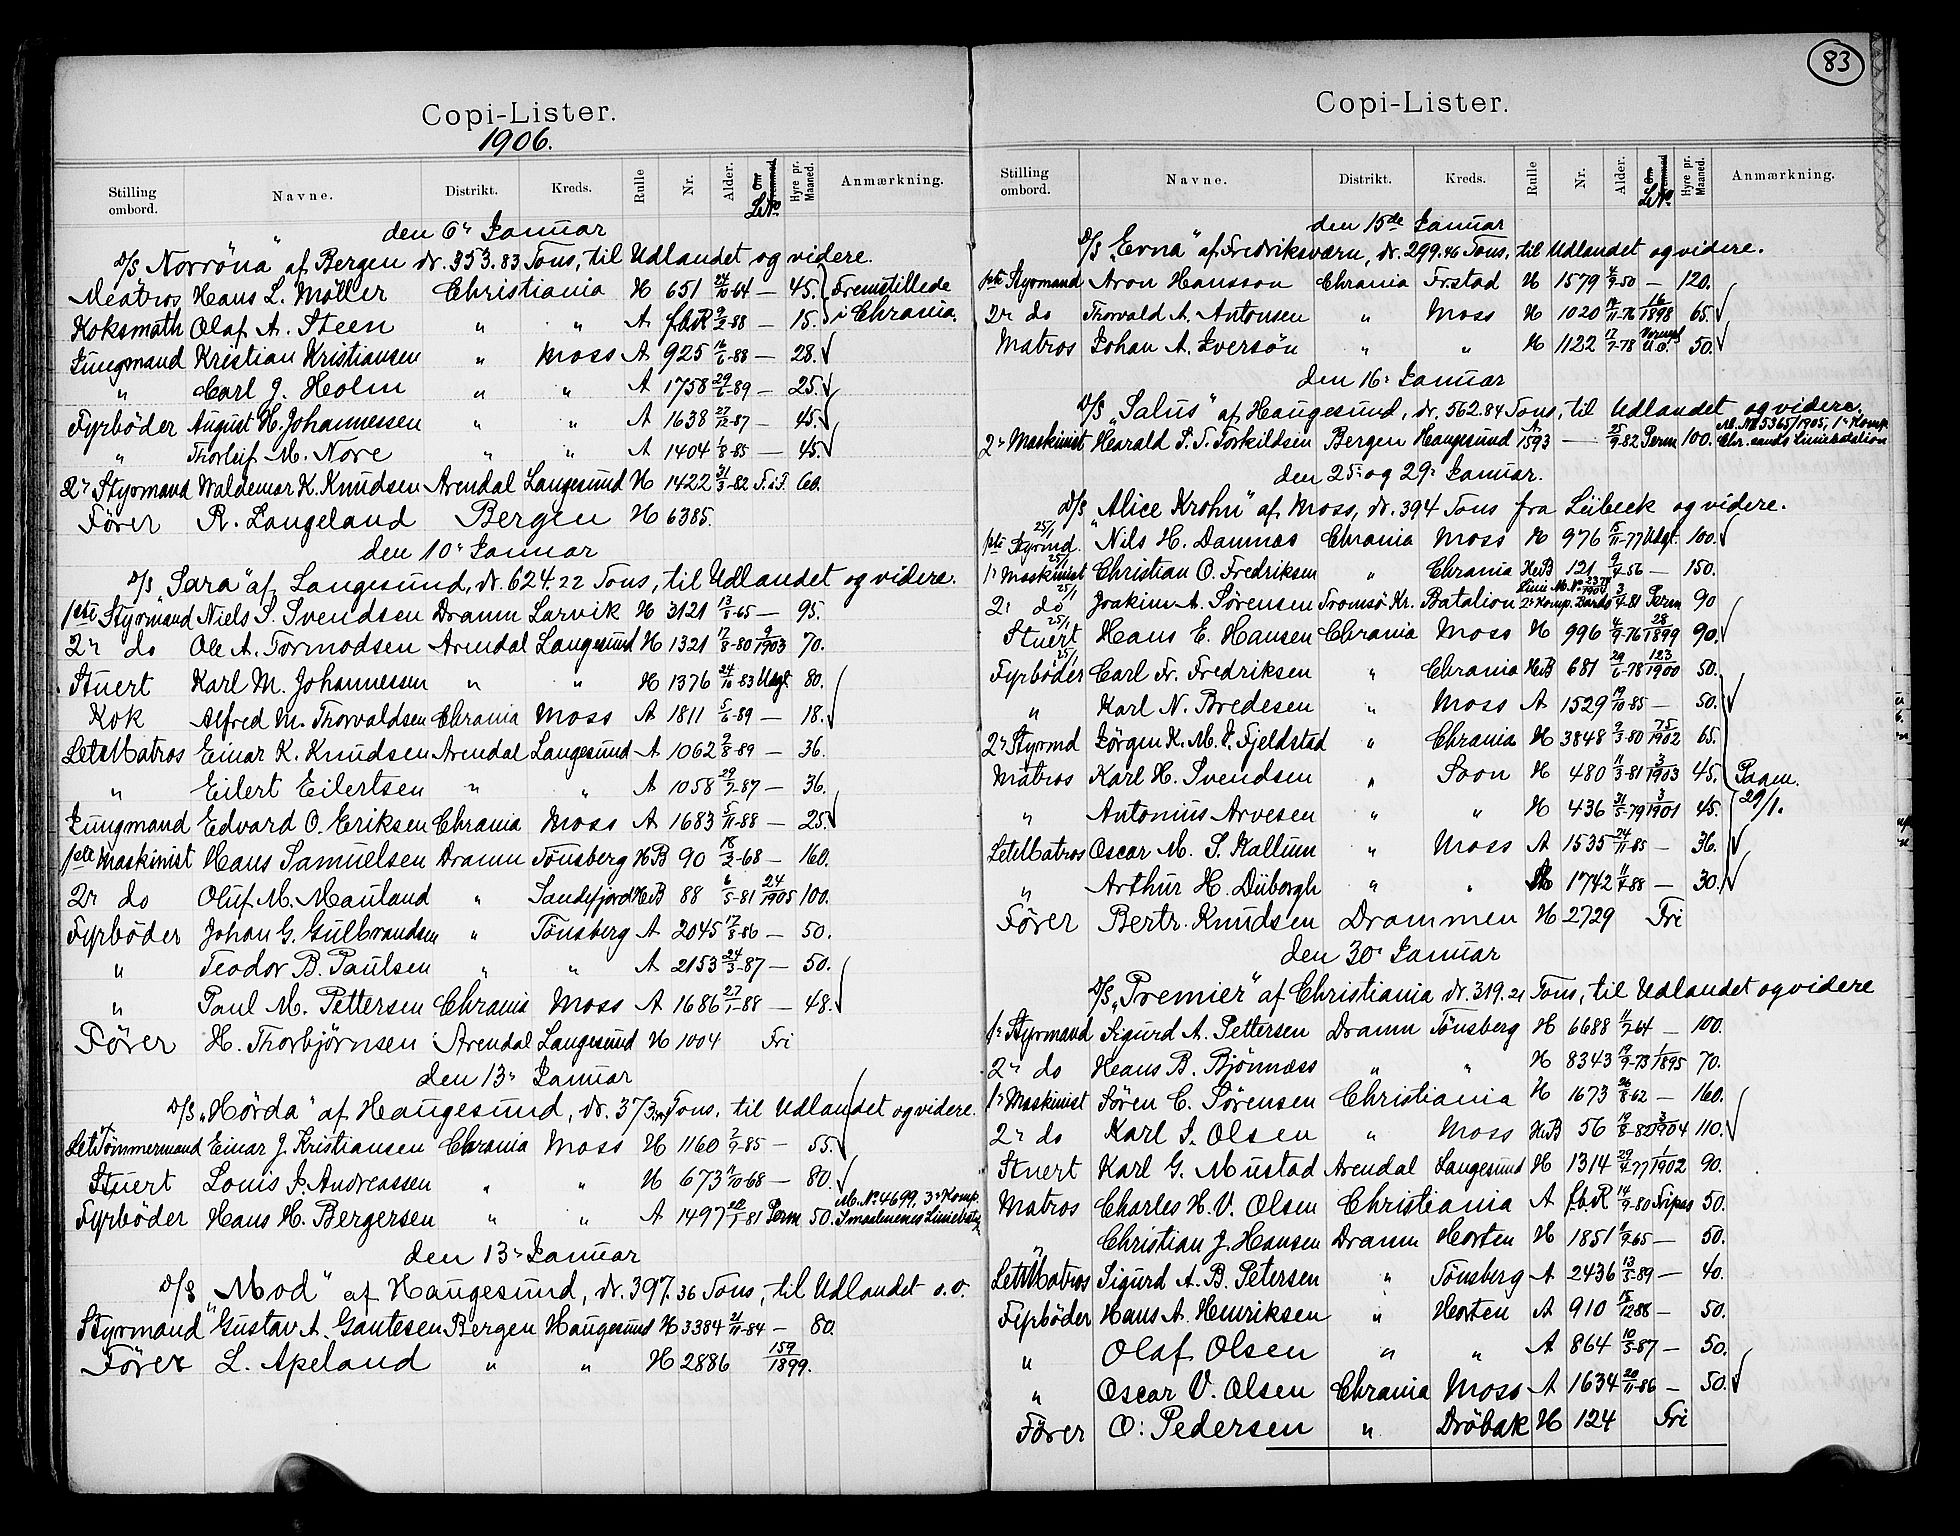 Copi-Lister.
1906.
Stilling ombord. Navne. Distrikt. Kreds. Rulle Nr. Alder. L.No. Hyre pr. Maaned. Anmærkning.
den 6r Januar
D/S „Norröna" af Bergen dr. 353.83 Tons, til Udlandet og videre.
Matros Hans L. Möller Christiania H 651 24/10-64 — 45. Fremstillede
Koksmath Olaf A. Steen " " A fbR 9/2-88 — 15. i Chrania.
Jungmand Kristian Kristiansen " Moss A 925 16/6-88 — 28.
" Carl J. Holm " " A 1758 29/6-89 — 25.
Fyrböder August H. Johannessen " " A 1638 27/12-87 — 45.
" Thorleif M. Nore " " A 1404 1/8-85 — 45.
2r Styrmand Waldemar K. Knudsen Arendal Langesund H 1422 31/3-82 F.i.S. 60.
Förer R. Langeland Bergen H 6385.
den 10r Januar
D/S „Sara" af Langesund, dr. 624.22 Tons, til Udlandet og videre.
1ste Styrmand Niels S. Svendsen Dramn Larvik H 3121 13/5-65 — 95.
2r do Ole A. Tormodsen Arendal Langesund H 1321 17/8-80 9/1903 70.
Stuert Karl M. Johannessen " " H 1376 24/10-83 Udgt 80.
Kok Alfred M. Thorvaldsen Chrania Moss A 1811 5/6-89 — 18.
LetMatros Einar K. Knudsen Arendal Langesund A 1062 2/8-89 — 36.
" Eilert Eilertsen " " A 1058 29/7-87 — 36.
Jungmand Edvard O. Eriksen Chrania Moss A 1683 5/11-88 — 25.
1ste Maskinist Hans Samuelsen Dramn Tönsberg HB 90 18/2-68 — 160.
2r do Oluf M. Mauland " Sandefjord HB 88 6/5-81 24/1905 100.
Fyrböder Johan G. Gulbrandsen " Tönsberg A 2045 17/8-86 — 50.
" Teodor B. Paulsen " " A 2153 24/3-87 — 50.
" Paul M. Pettersen Chrania Moss A 1686 27/1-88 — 48.
Förer H. Thorbjörnsen Arendal Langesund H 1004 Fri
den 13r Januar
D/S „Hörda" af Haugesund, dr. 373 Tons, til Udlandet og videre.
LetTömmermand Einar J. Kristiansen Chrania Moss H 1160 2/9-85 — 55.
Stuert Louis J. Andreassen " " H 673 1/10-68 — 80.
Fyrböder Hans H. Bergersen " " A 1497 22/1-81 Perm 50. M. No 4699, 3r Komp.
den 13r Januar
D/S „Mod" af Haugesund, dr. 397.36 Tons, til Udlandet o.v.
Styrmand Gustav A. Gautesen Bergen Haugesund H 3384 21/11-84 — 80.
Förer L. Apeland " " H 2886 159/1899.
83
Copi-Lister.
Stilling ombord. Navne. Distrikt. Kreds. Rulle Nr. Alder. L.No. Hyre pr. Maaned. Anmærkning.
den 15de Januar
D/S „Erna" af Fredriksværn, dr. 299.46 Tons, til Udlandet og videre.
1ste Styrmand Aron Hansson Chrania Frstad H 1579 4/9-50 — 120.
2r do Thorvald A. Antonsen " Moss H 1020 14/11-76 16/1898 65.
Matros Johan A. Iversön " " H 1122 17/7-78 50.
den 16r Januar
D/S „Salus" af Haugesund, dr. 562.84 Tons, til Udlandet og videre.
2r Maskinist Harald S. T. Torkildsen Bergen Haugesund A 1593 — 25/9-82 Perm 100. M. No 5365/1905, 1r Komp. Chr.sands Liniebatalion
den 25r og 29r Januar.
D/S „Alice Krohn" af Moss, dr. 394 Tons fra Lübeck og videre.
1ste Styrmd. 25/1 Nils H. Damnæs Chrania Moss H 976 15/11-77 Udgt. 100.
1r Maskinist 25/1 Christian O. Fredriksen " Chrania HB 121 9/4-56 — 150.
2r do 25/1 Joakim A. Sörensen Tromsö Kr. Batalion Linie M. No 2378/1904 2r Komp. Bardö 3/4-81 Perm 90
Stuert 25/1 Hans E. Hansen Chrania Moss H 996 4/9-76 28/1899 90.
Fyrböder 25/1 Carl Fr. Fredriksen " Chrania HB 681 29/6-78 123/1900 50.
" Karl N. Bredesen " Moss A 1529 19/10-85 — 50.
2r Styrmd Jörgen K. M. J. Fjeldstad " Chrania H 3848 9/3-80 75/1902 65.
Matros Karl H. Svendsen " Soon H 480 11/3-81 3/1903 45. Paam.
" Antonius Arvesen " " H 436 31/5-79 3/1901 45. 29/1.
LetMatros Oscar M. S. Kallum " Moss A 1535 24/11-85 — 36.
" Arthur H. Düborgh " " A 1742 11/4-88 — 30.
Förer Bertr. Knudsen Drammen H 2729 Fri
den 30r Januar
D/S „Premier" af Christiania dr. 319.21 Tons, til Udlandet og videre
1r Styrmand Sigurd A. Pettersen Dramn Tönsberg H 6688 11/7-64 — 100.
2r do Hans B. Bjönnæss " " H 8343 19/9-73 1/1895 70.
1r Maskinist Sören C. Sörensen Christiania H 1673 26/8-62 — 160.
2r do Karl S. Olsen " Moss HB 56 19/8-80 3/1904 110.
Stuert Karl G. Mustad Arendal Langesund H 1314 29/4-77 1/1902 90.
Matros Charles H. V. Olsen Christiania A fbR 14/9-80 Fripas 50.
" Christian J. Hansen Dramn Horten H 1851 1/9-65 — 50.
LetMatros Sigurd A. B. Petersen " Tönsberg A 2436 13/5-89 — 40.
Fyrböder Hans A. Henriksen " Horten A 910 15/12 88 — 50.
" Olaf Olsen " " A 864 10/5-87 — 50.
" Oscar V. Olsen Chrania Moss A 1634 20/11-86 — 50.
Förer O. Pedersen " Dröbak H 124 Fri